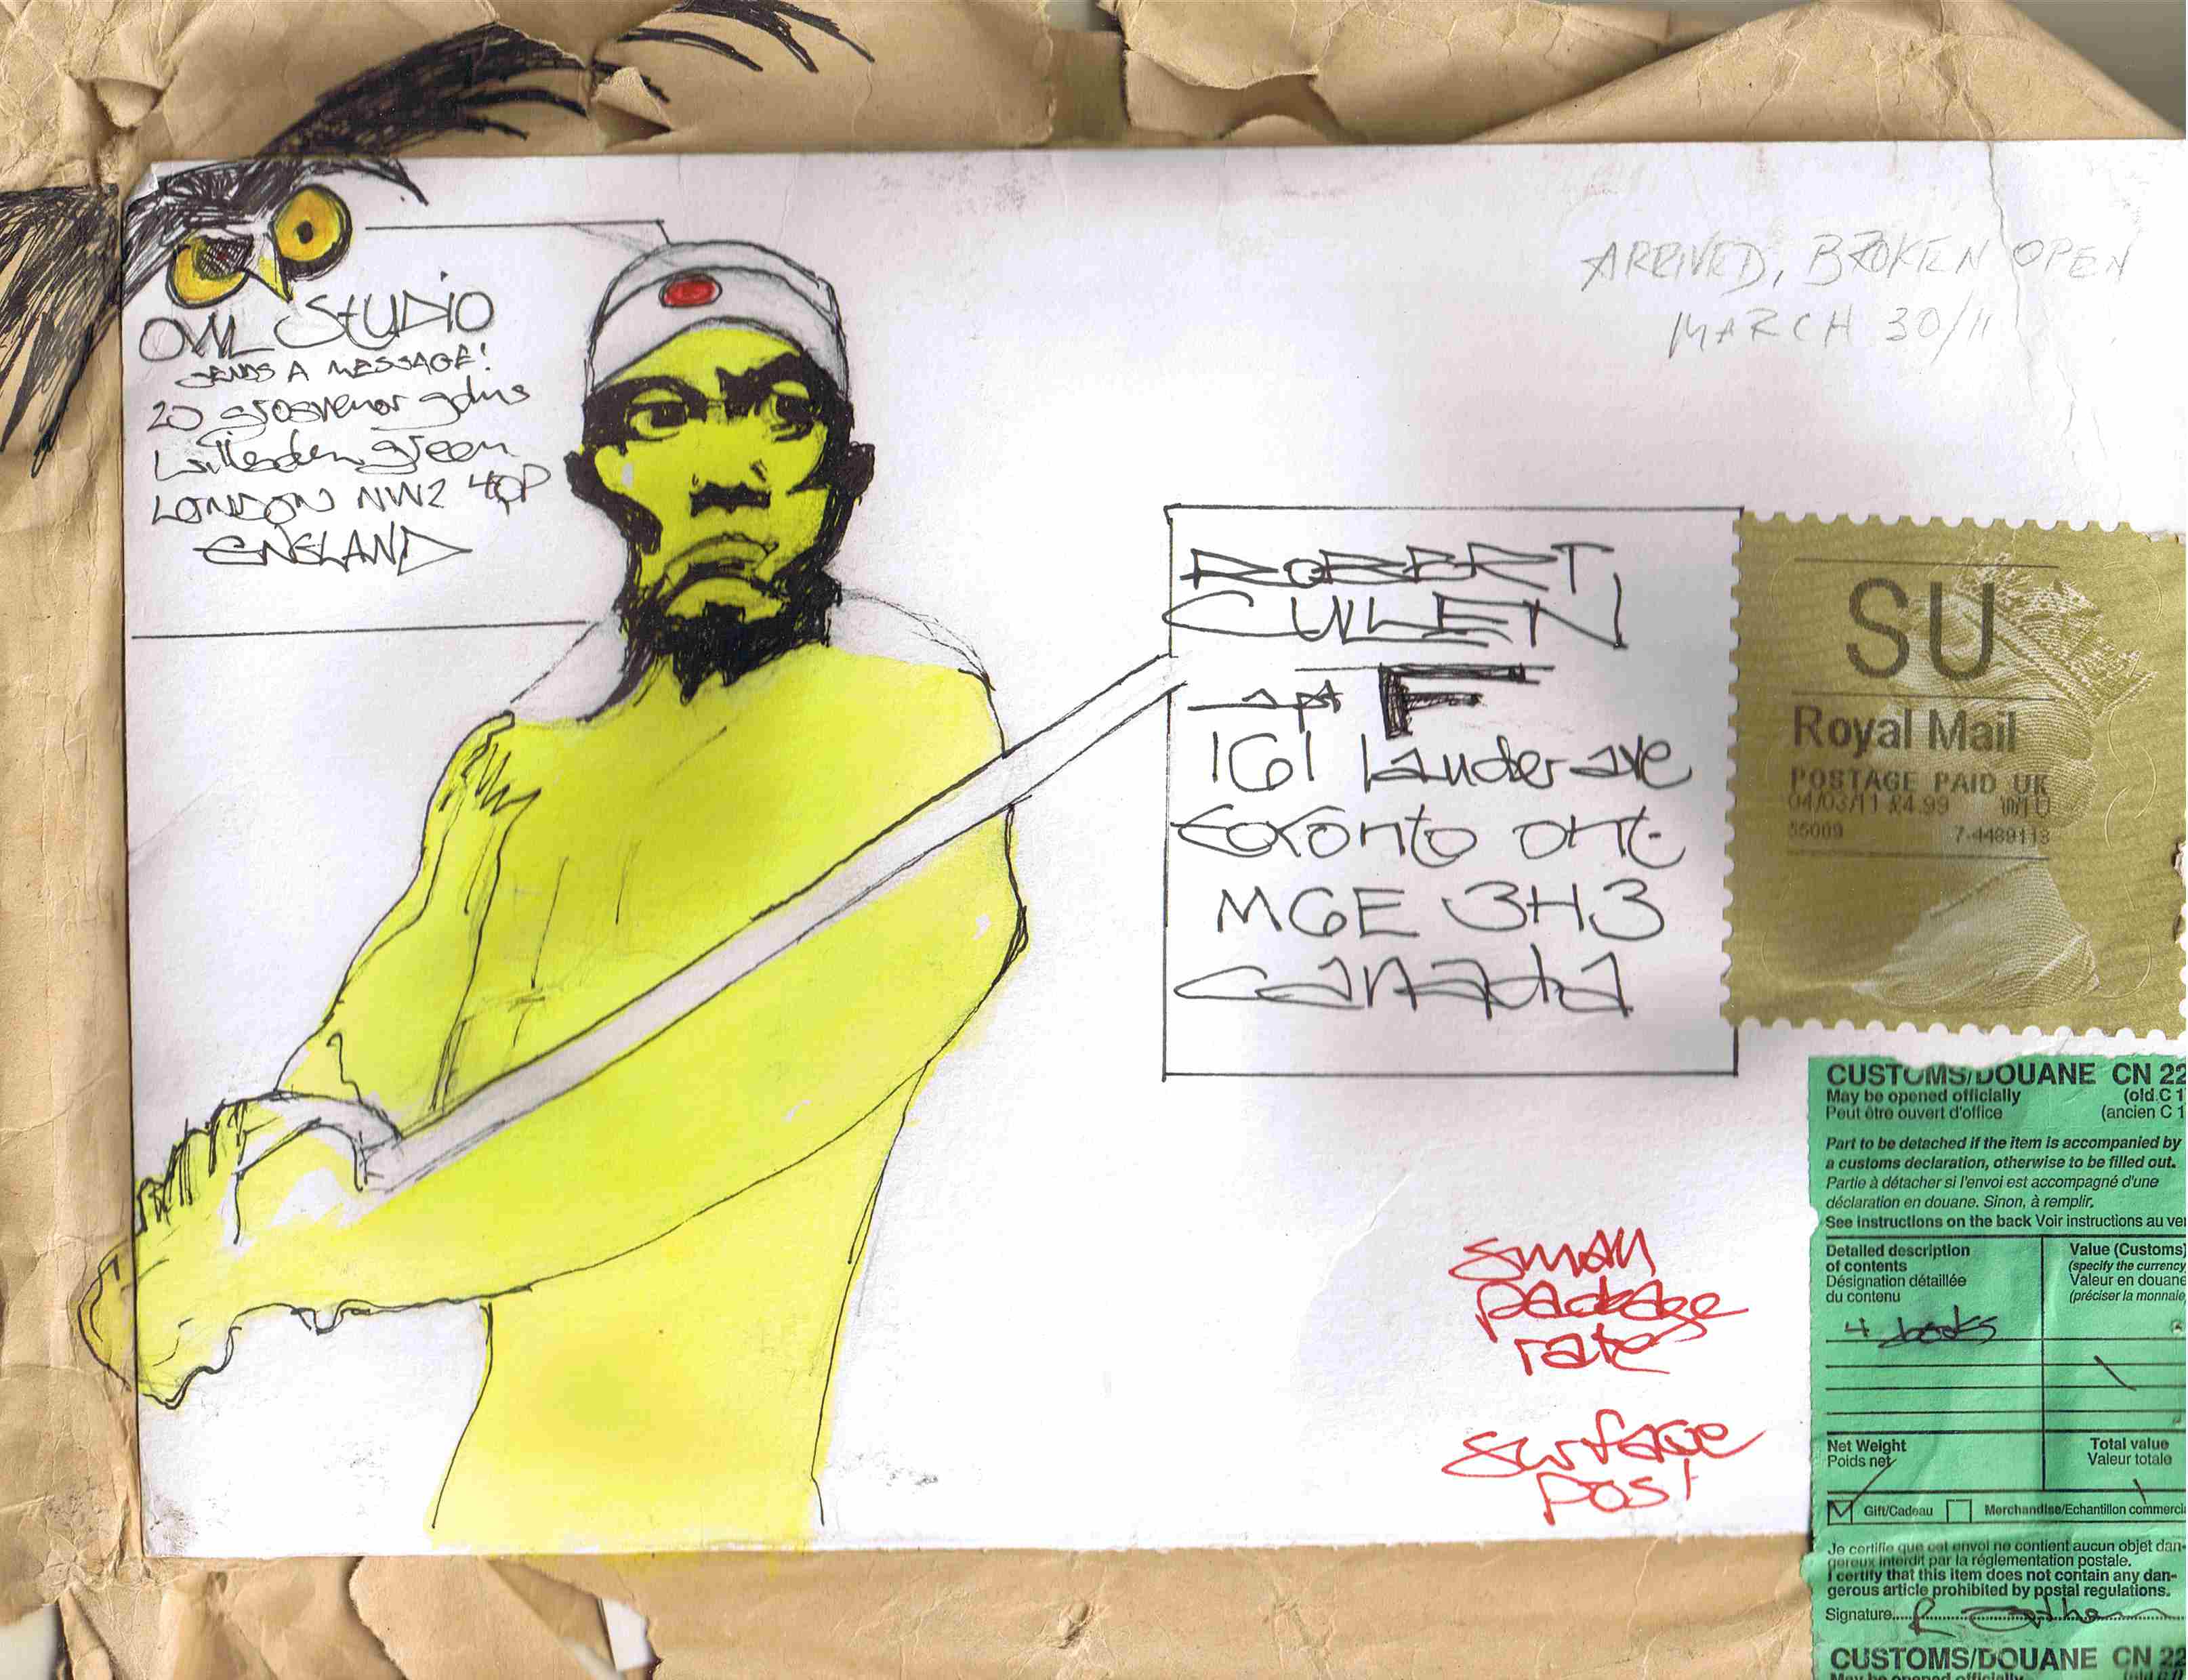 OWL STUDIO
SENDS A MESSAGE!
20 grosvenor gdns
willesden green
LONDON NW2 4QP
ENGLAND
ARRIVED, BROKEN OPEN
MARCH 30/11
ROBERT
CULLEN
apt F
161 Lauder ave
toronto ont.
M6E 3H3
canada
SU
Royal Mail
POSTAGE PAID UK
04/03/11 £4.99
55009 7-4489113
small
package
rate
surface
post
CUSTOMS/DOUANE CN 22
May be opened officially (old C 1
Peut être ouvert d'office (ancien C 1
Part to be detached if the item is accompanied by
a customs declaration, otherwise to be filled out.
Partie à détacher si l'envoi est accompagné d'une
déclaration en douane. Sinon, à remplir.
See instructions on the back Voir instructions au ver
Detailed description
of contents
Désignation détaillée
du contenu
Value (Customs)
(specify the currency
Valeur en douane
(préciser la monnaie
4 books
Net Weight
Poids net
Total value
Valeur totale
Gift/Cadeau Merchandise/Echantillon commerci
Je certifie que cet envoi ne contient aucun objet dan-
gereux interdit par la réglementation postale.
I certify that this item does not contain any dan-
gerous article prohibited by postal regulations.
Signature
CUSTOMS/DOUANE CN 22
May be opened officially